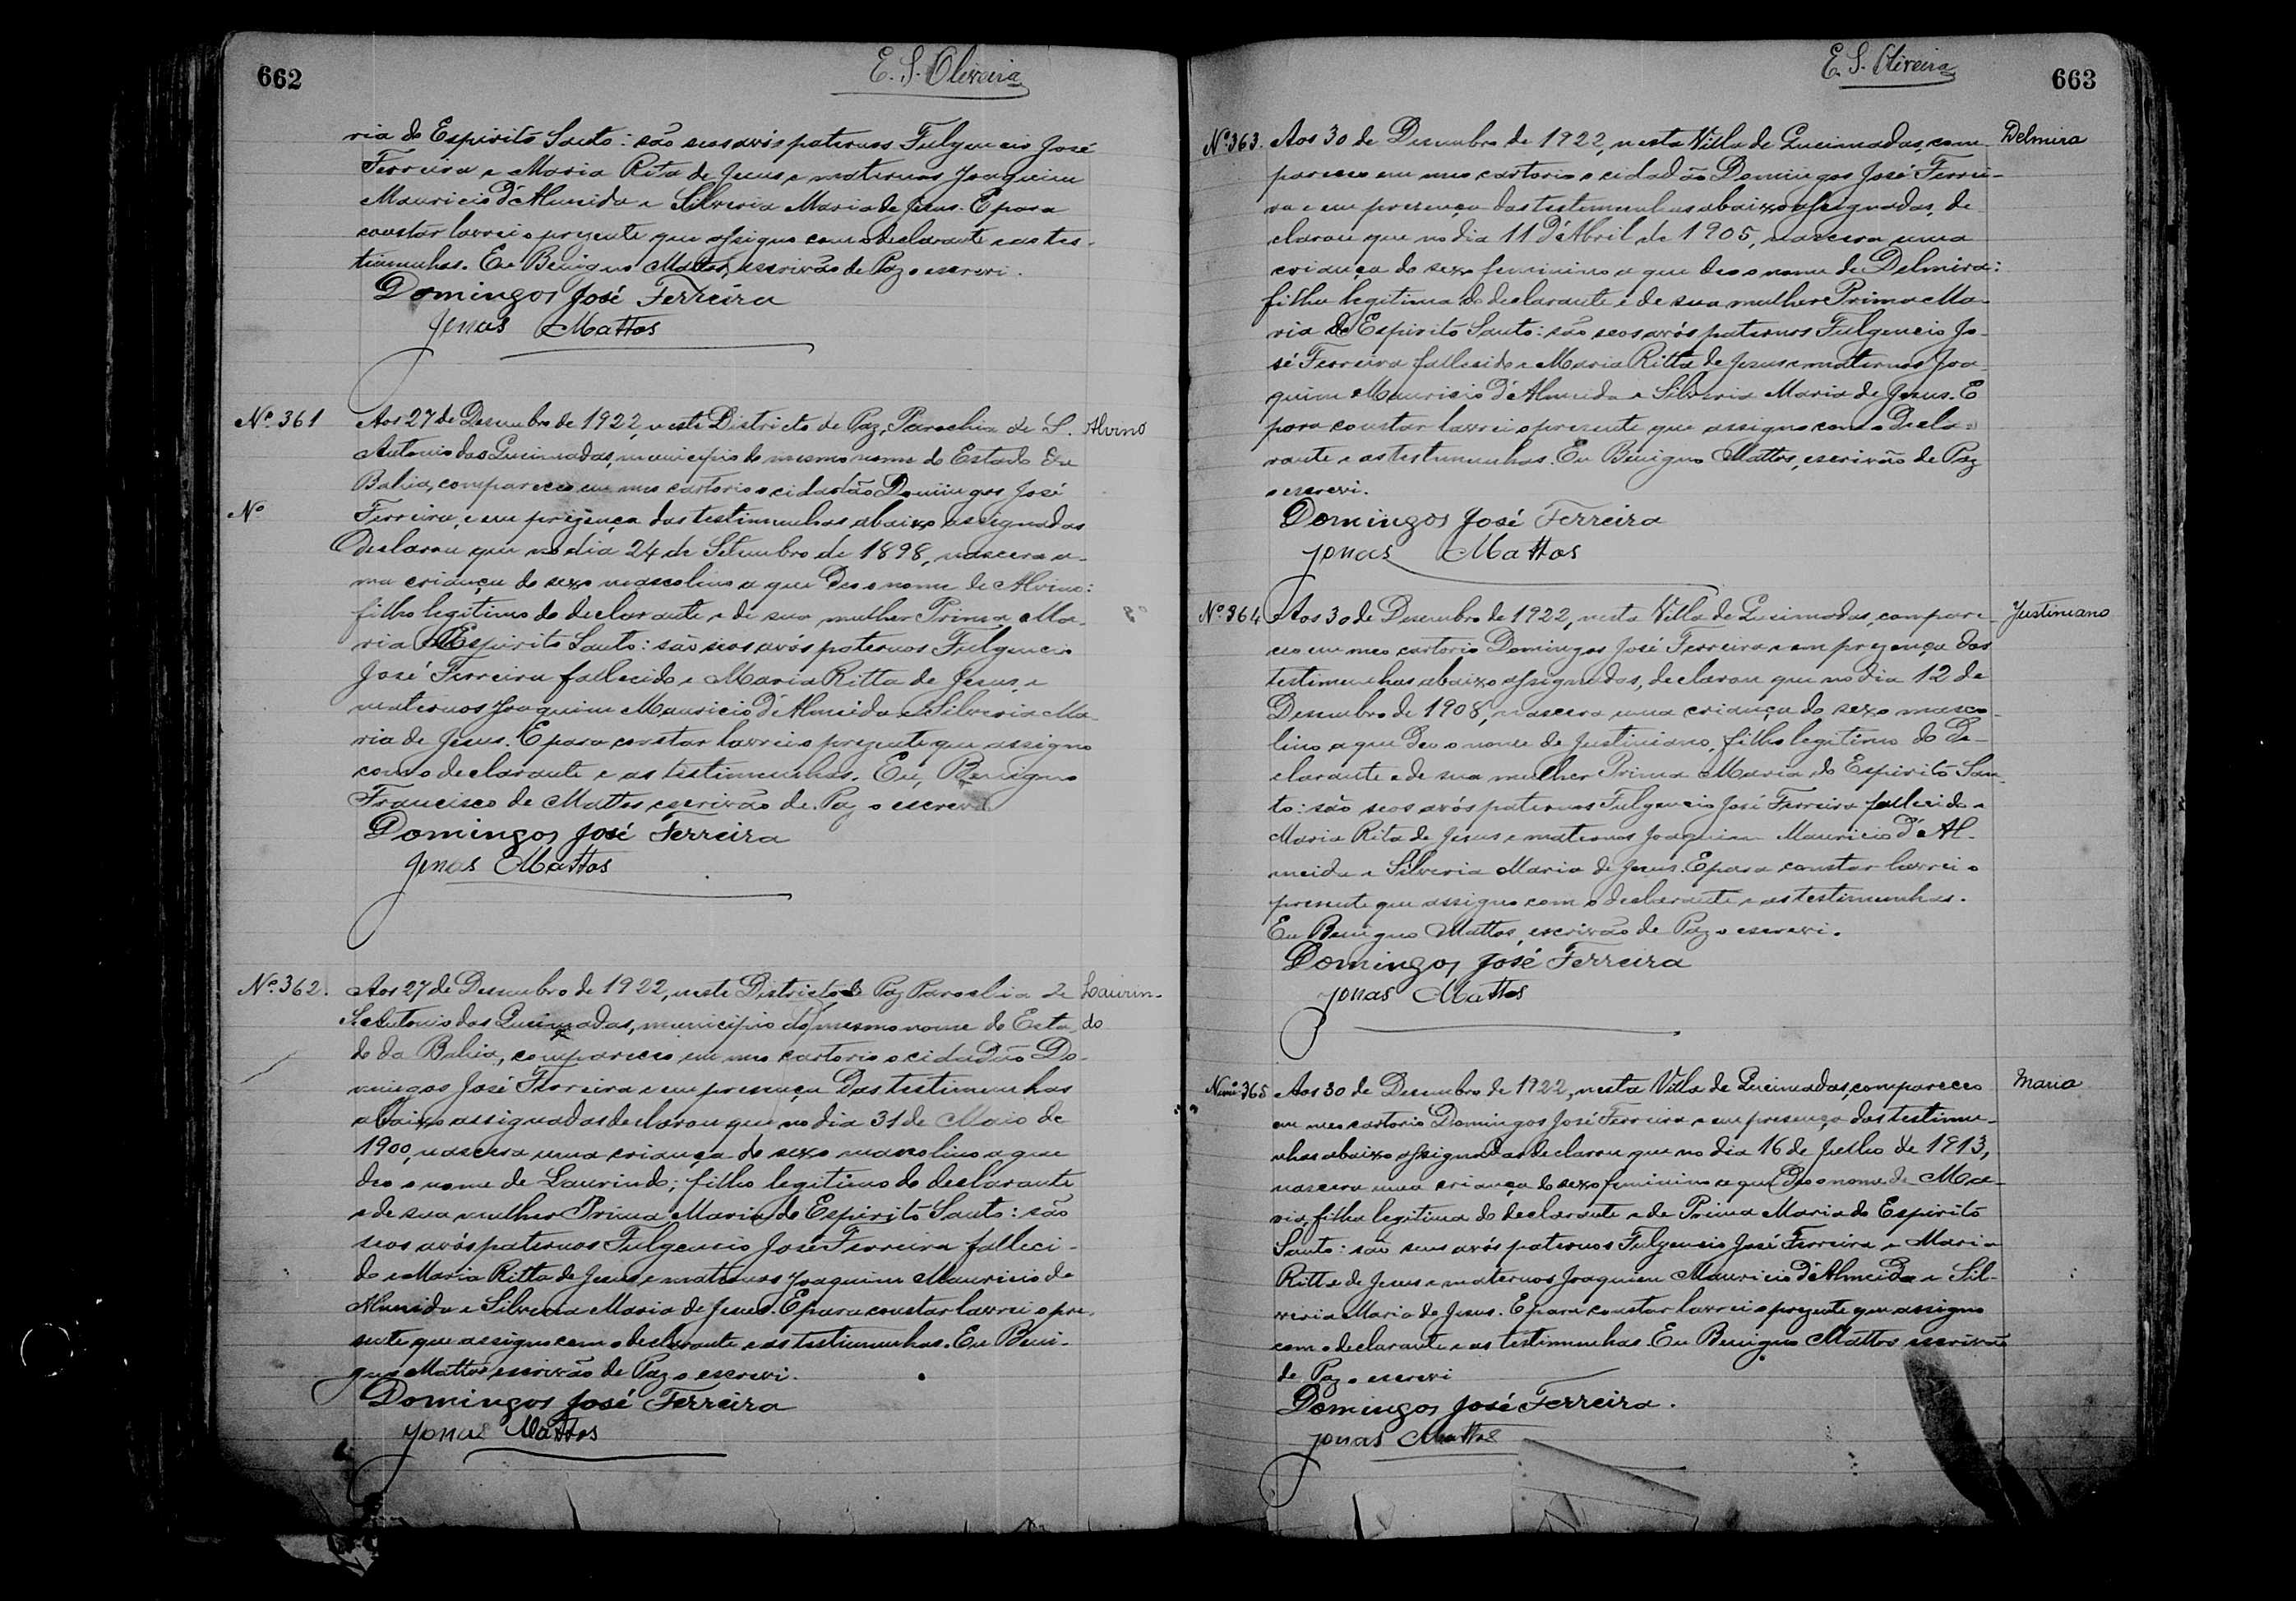 662
E. S. Oliveira
ria do Espirito Santo: são seos avós paternos Fulgencio José
Ferreira e Maria Rita de Jesus e maternos Joaquim
Mauricio d'Almeida e Silveria Maria de Jesus. E para
constar lavrei o prezente que assigno com o declarante e as tes-
timunhas. Eu Benigno Mattos, escrivão de Paz o escrevi.
Domingos José Ferreira
Jonas Mattos
Nº 361
Aos 27 de Desembro de 1922, neste Districto de Paz, Parochia de S.
Alvino
Antonio das Queimadas, municipio do mesmo nome do Estado da
Bahia, compareceo em meo cartorio o cidadão Domingos José
Nº
Ferreira, e em prezença das testimunhas abaixo assignadas
declarou que no dia 24 de Setembro de 1898, nascera u-
ma criança do sexo mascolino a que deo o nome de Alvino:
filho legitimo do declarante e de sua mulher Prima Ma-
ria do Espirito Santo: são seos avós paternos Fulgencio
José Ferreira fallecido e Maria Ritta de Jesus, e
maternos Joaquim Mauricio d'Almeida e Silveria Ma-
ria de Jesus. E para constar lavrei o prezente que assigno
com o declarante e as testimunhas. Eu, Benigno
Francisco de Mattos escrivão de Paz o escrevi
Domingos José Ferreira
Jonas Mattos
Nº 362.
Aos 27 de Desembro de 1922, neste Districto de Paz Parochia de
Laurin-
S. Antonio das Queimadas, municipio do mesmo nome do Esta-
do
do da Bahia, compareceo em meo cartorio o cidadão Do-
mingos José Ferreira e em presença das testimunhas
abaixo assignadas declarou que no dia 31 de Maio de
1900, nascera uma criança do sexo mascolino a que
deo o nome de Laurindo; filho legitimo do declarante
e de sua mulher Prima Maria do Espirito Santo: são
seos avós paternos Fulgencio José Ferreira falleci-
do e Maria Ritta de Jesus e maternos Joaquim Mauricio de
Almeida e Silveria Maria de Jesus. E para constar lavrei o pre-
sente que assigno com o declarante e as testimunhas. Eu Beni-
gno Mattos escrivão de Paz o escrevi.
Domingos José Ferreira
Jonas Mattos
E. S. Oliveira
663
Nº 363.
Aos 30 de Desembro de 1922, nesta Villa de Queimadas, com-
Delmira
pareceo em meo cartorio o cidadão Domingos José Ferrei-
ra e em presença das testemunhas abaixo assignadas, de-
clarou que no dia 11 d'Abril de 1905, nascera uma
criança do sexo feminino a que deo o nome de Delmira:
filha legitima do declarante e de sua mulher Prima Ma-
ria do Espirito Santo: são seos avós paternos Fulgencio Jo-
sé Ferreira fallecido e Maria Ritta de Jesus e maternos Joa-
quim Mauricio d'Almeida e Silveria Maria de Jesus. E
para constar lavrei o presente que assigno com o Decla-
rante e as testemunhas. Eu Benigno Mattos, escrivão de Paz
o escrevi.
Domingos José Ferreira
Jonas Mattos
Nº 364
Aos 30 de Desembro de 1922, nesta Villa de Queimadas, compare-
Justiniano
ceo em meo cartorio Domingos José Ferreira e em prezença das
testimunhas abaixo assignadas, declarou que no dia 12 de
Desembro de 1908, nascera uma criança do sexo masco-
lino a que deo o nome de Justiniano, filho legitimo do De-
clarante e de sua mulher Prima Maria do Espirito San-
to: são seos avós paternos Fulgencio José Ferreira fallecido e
Maria Rita de Jesus e maternos Joaquim Mauricio d'Al-
meida e Silveria Maria de Jesus. E para constar lavrei o
presente que assigno com o declarante e as testimunhas.
Eu Benigno Mattos, escrivão de Paz o escrevi.
Domingos José Ferreira
Jonas Mattos
Num: 365
Aos 30 de Desembro de 1922, nesta Villa de Queimadas, compareceo
Maria
em meo cartorio Domingos José Ferreira e em presença das testimu-
nhas abaixo assignadas declarou que no dia 16 de Julho de 1913,
nascera uma criança do sexo feminino a que deo o nome de Ma-
ria, filha legitima do declarante e de Prima Maria do Espirito
Santo: são seus avós paternos Fulgencio José Ferreira e Maria
Ritta de Jesus e maternos Joaquim Mauricio d'Almeida e Sil-
veria Maria de Jesus. E para constar lavrei o prezente que assigno
com o declarante e as testimunhas. Eu Benigno Mattos escrivão
de Paz o escrevi
Domingos José Ferreira.
Jonas Mattos